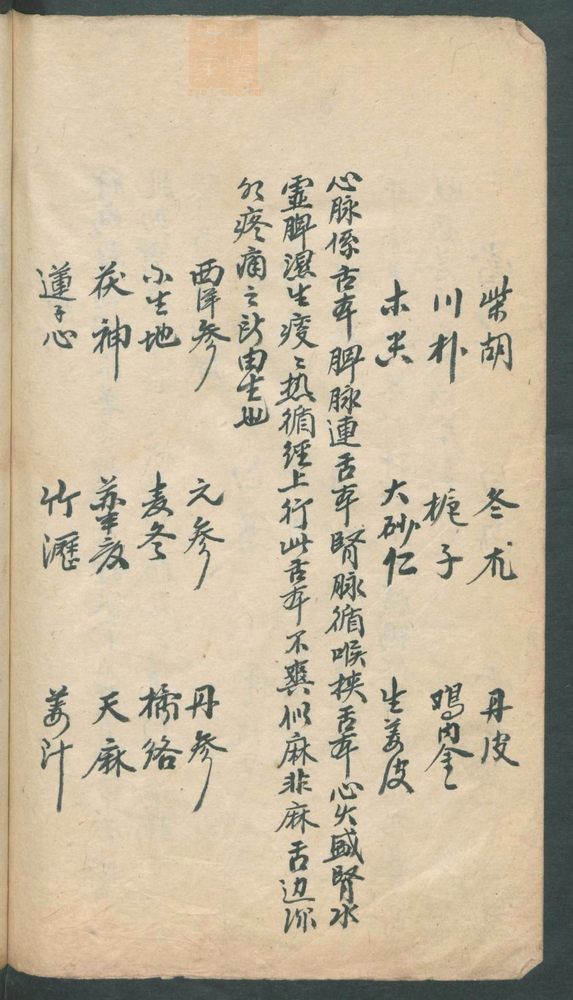 柴胡 冬朮 丹皮
川朴 梔子 鸡内金
木 大砂仁 生姜皮
心脉係舌本脾脉連舌本腎脉循喉挾舌本心火盛腎水
虚脾濕生痰〻热循經上行此舌本不爽似麻非麻舌边
疼痛之所由生也
西洋參 元參 丹參
小生地 麦冬 橘絡
茯神 天麻
蓮子心 竹瀝 姜汁